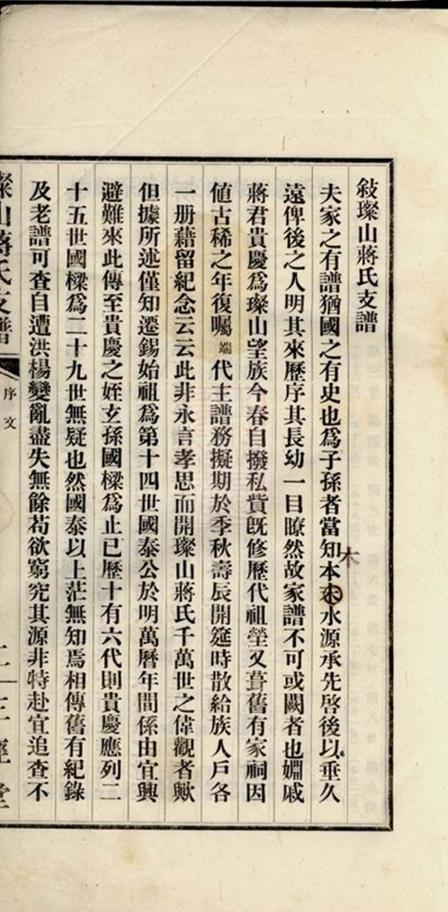 敍璨山蔣氏支譜
夫家之有譜猶國之有史也爲子孫者當知本末木水源承先啓後以垂久
遠俾後之人明其來歷序其長幼一目瞭然故家譜不可或闕者也嫺戚
蔣君貴慶爲璨山望族今春自撥私貲旣修歷代祖塋又葺舊有家祠因
値古稀之年復囑端代主譜務擬期於季秋壽辰開筵時散給族人戶各
一册藉留紀念云云此非永言孝思而開璨山蔣氏千萬世之偉觀者歟
但據所述僅知遷錫始祖爲第十四世國泰公於明萬曆年間係由宜興
避難來此傳至貴慶之姪玄孫國樑爲止已歷十有六代則貴慶應列二
十五世國樑爲二十九世無疑也然國泰以上茫無知焉相傳舊有紀錄
及老譜可查自遭洪楊變亂盡失無餘苟欲窮究其源非特赴宜追查不
璨山蔣氏支譜
序文
三徑堂